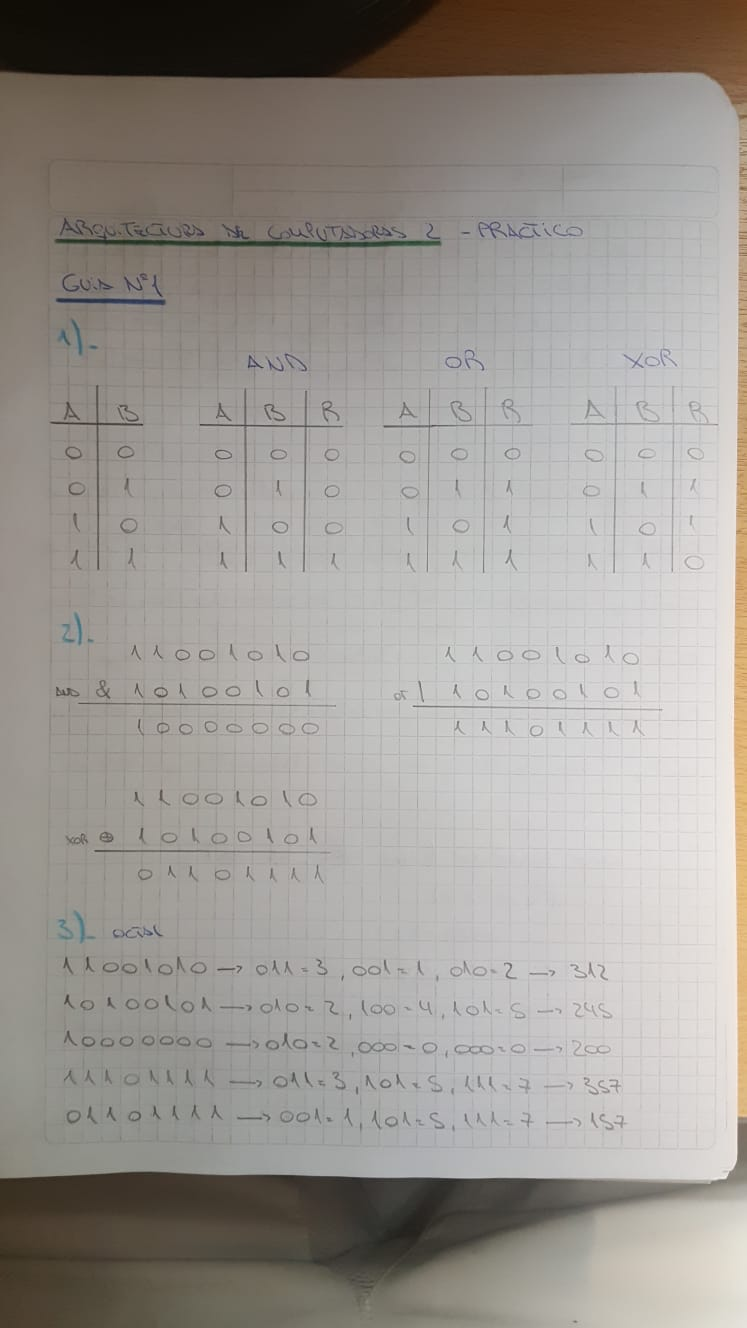 ARQUITECTURA DE COMPUTADORAS 2 - PRACTICO
GUIA N°1
1).-
AND OR XOR
A B A B R A B R A B R
0 0 0 0 0 0 0 0 0 0 0
0 1 0 1 0 0 1 1 0 1 1
1 0 1 0 0 1 0 1 1 0 1
1 1 1 1 1 1 1 1 1 1 0
2).-
11001010 11001010
AND & 10100101 or | 10100101
10000000 11101111
11001010
XOR ⊕ 10100101
01101111
3).- octal
11001010 → 011=3, 001=1, 010=2 → 312
10100101 → 010=2, 100=4, 101=5 → 245
10000000 → 010=2, 000=0, 000=0 → 200
11101111 → 011=3, 101=5, 111=7 → 357
01101111 → 001=1, 101=5, 111=7 → 157